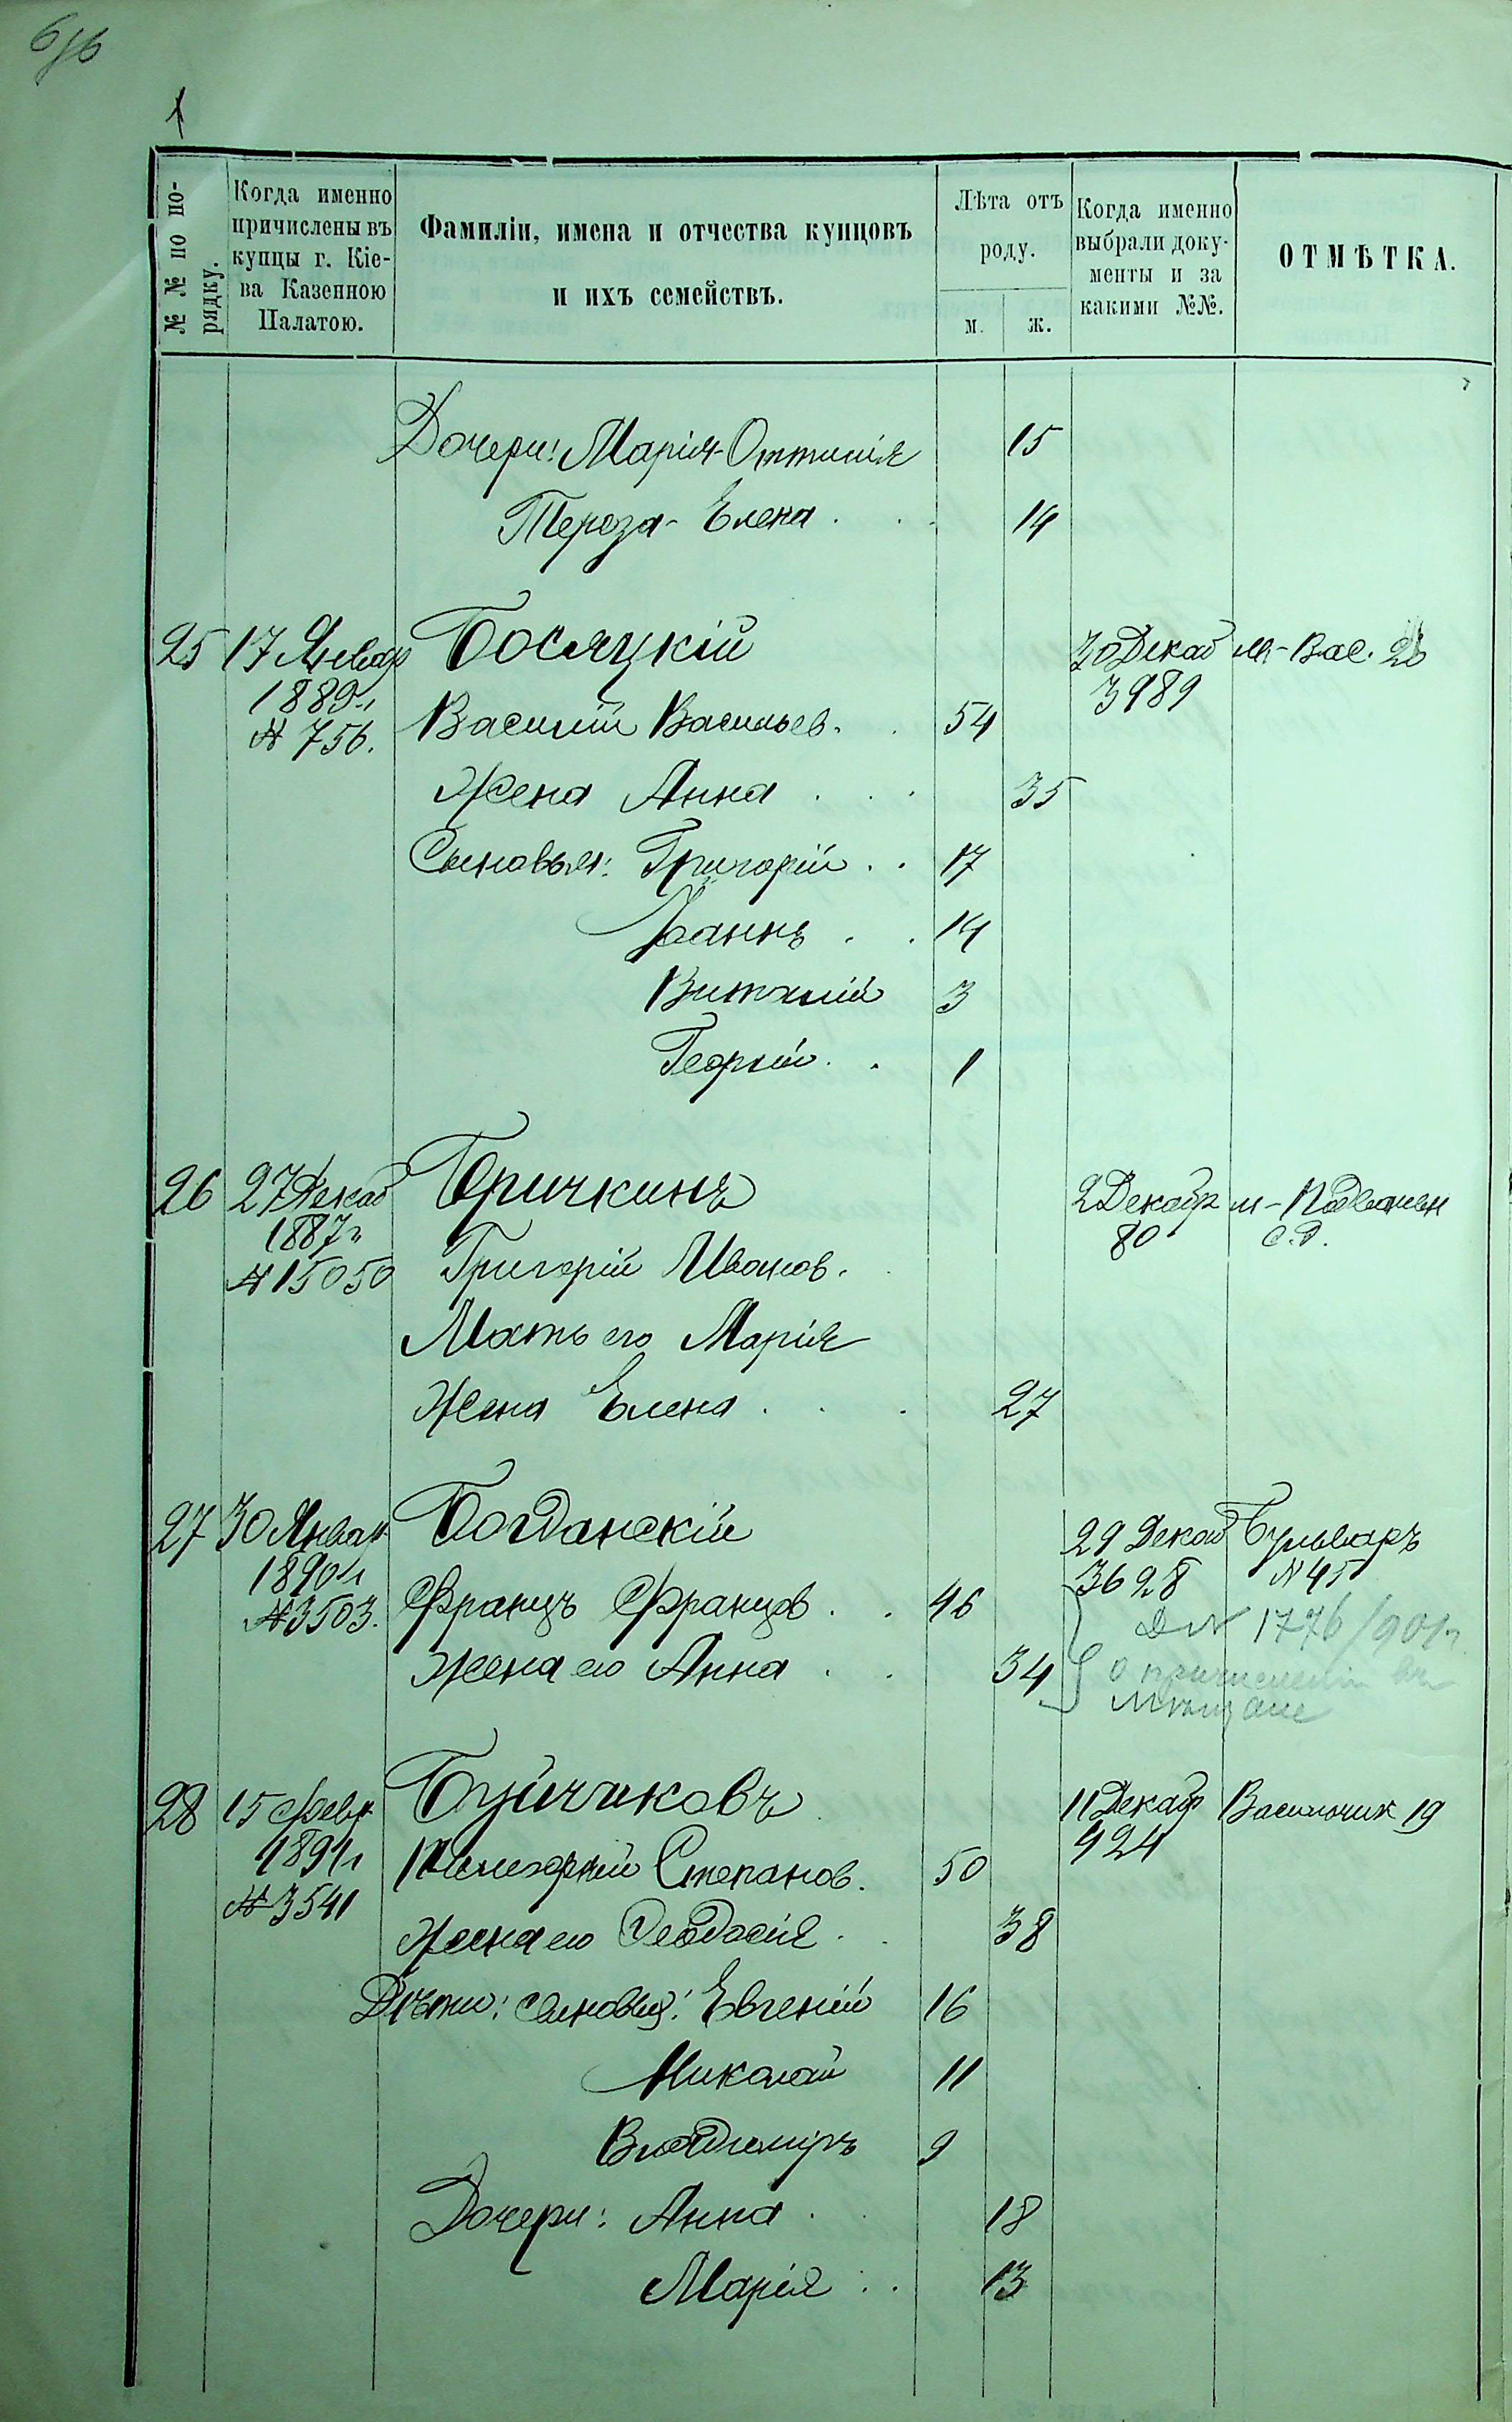 1
№ № по по-
рядку.
Когда именно
причислены въ
купцы г. Кіе-
ва Казенною
Палатою.
Фамиліи, имена и отчества купцовъ
и ихъ семействъ.
Лѣта отъ
роду.
м. ж.
Когда именно
выбрали доку-
менты и за
какими №№.
ОТМѢТКА.
Дочери: Марія-Оттилія 15
Тереза-Елена . . 14
25 17 Январ Босяцкій 30 Декаб м-Вас. 20
1889 г. 3989
№ 756. Василій Васильев. . 54
Жена Анна . . . 35
Сыновья: Григорій . . 17
Іоаннъ . . 14
Виталій 3
Георгій . . 1
26 27 Декаб Бричкинъ 2 Декабр м-Подвальн
1887 г. 80 с.д.
№ 15050 Григорій Иванов.
Мать его Марія
Жена Елена . . . 27
27 30 Январ Богданскій 29 Декаб Бульваръ
1890 г. 3628 № 45
№ 3503. Францъ Францов . . 46
Д № 1776/901 г.
Жена его Анна . . 34 о причисленіи въ
мѣщане
28 15 Февр Буйчиковъ 11 Декабр Васильчик 19
1891 г. 424
№ 3541 Степанов. 50
Жена его Феодосія . . 38
Дѣти: сыновья: Евгеній 16
Николай 11
Владиміръ 9
Дочери: Анна . 18
Марія . . 13